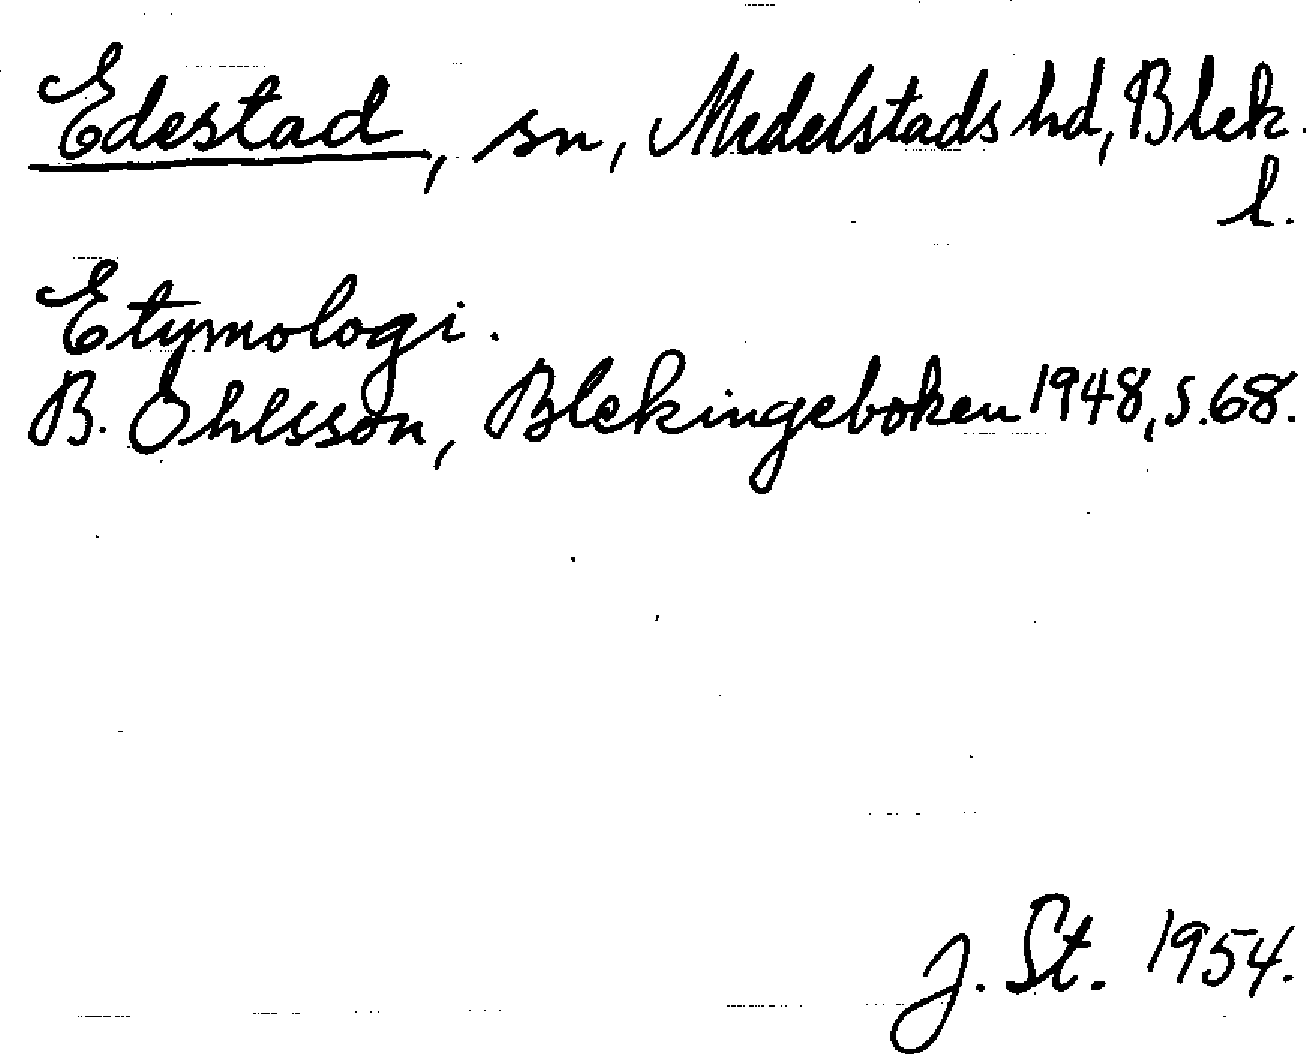 Edestad, sn, Medelstads hd, Blek.
l.
Etymologi.
B. Ohlsson, Blekingeboken 1948, s. 68.
J. St. 1954.